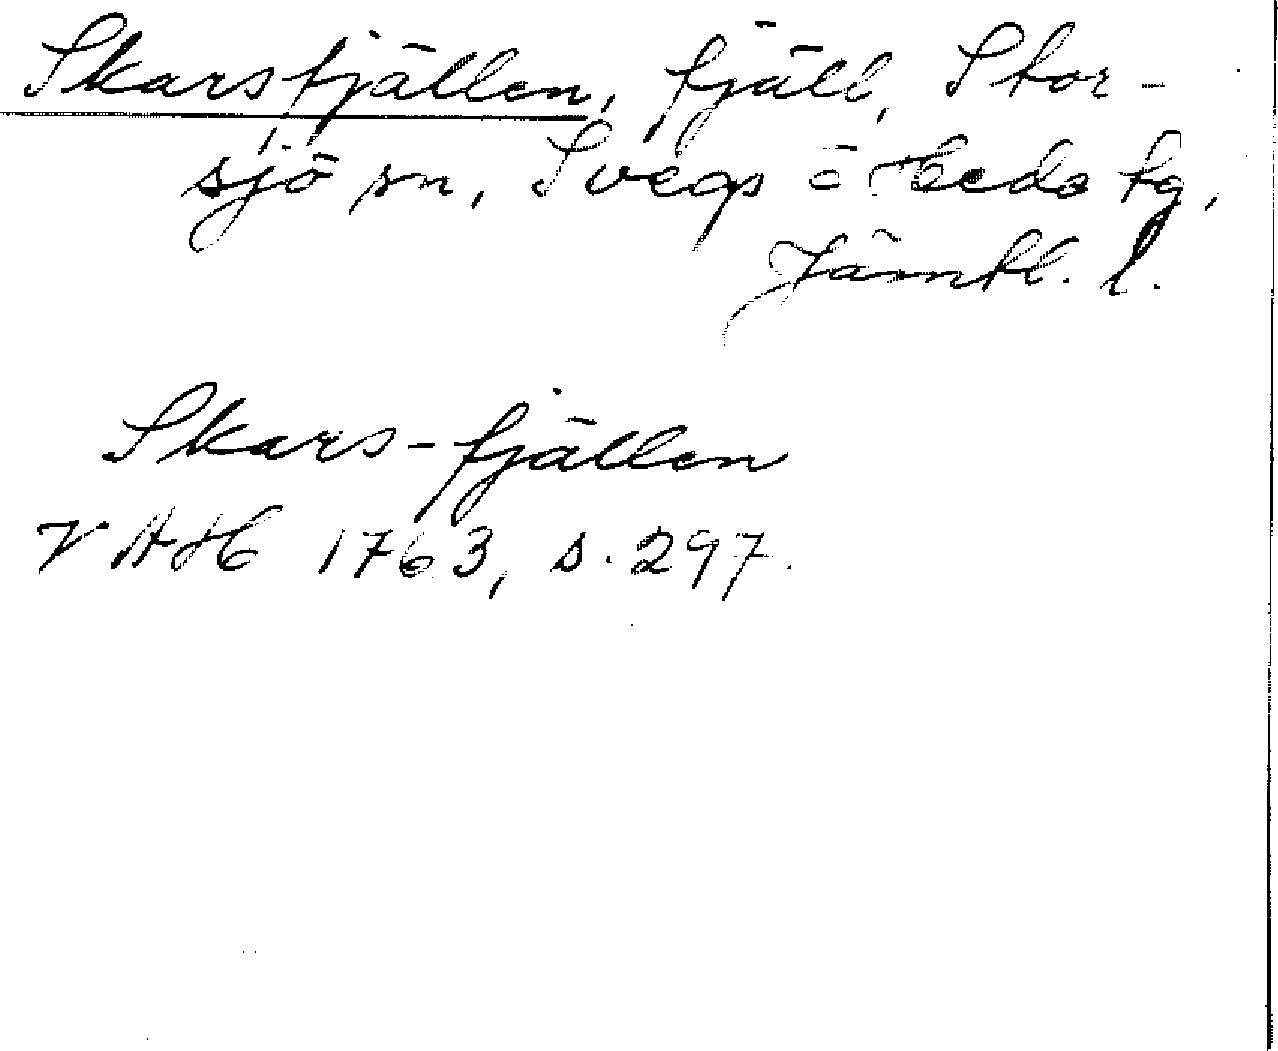 Skarsfjällen, fjäll, Stor-
sjö sn, Svegs o Hede tg,
Jämtl. l.
Skars-fjällen
VAH 1763, s. 297.